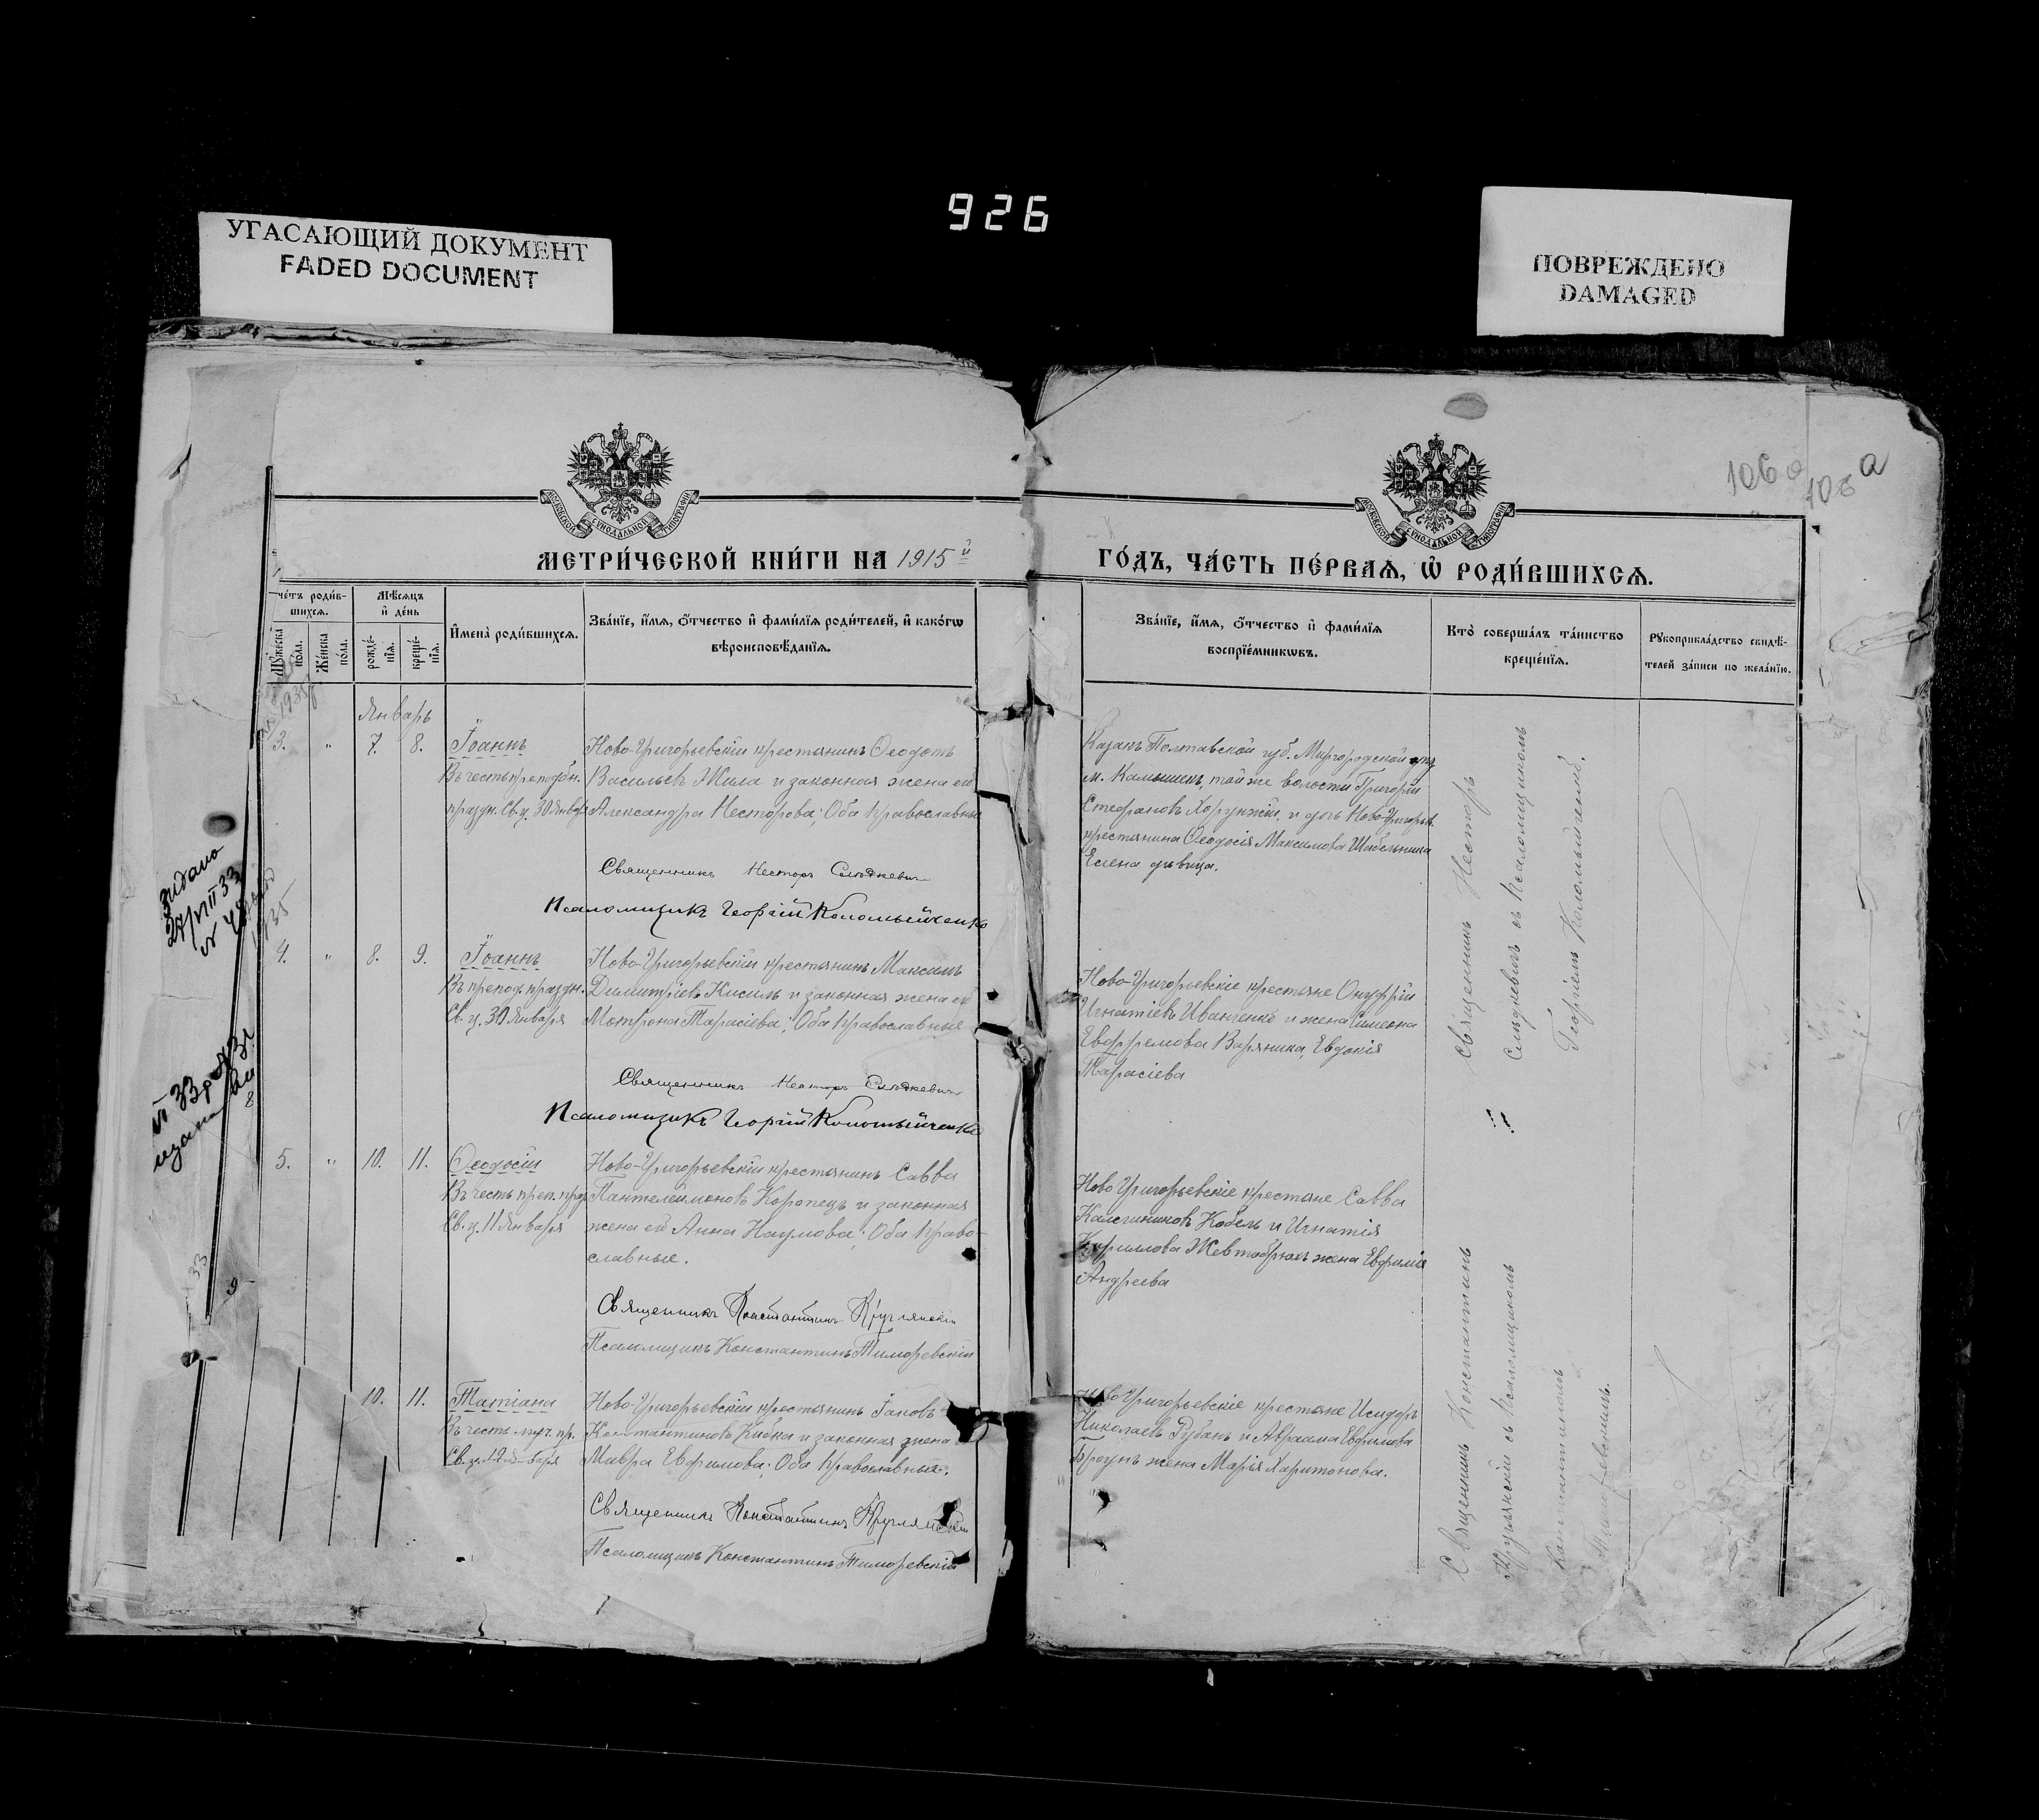 926
УГАСАЮЩИЙ ДОКУМЕНТ
FADED DOCUMENT
ПОВРЕЖДЕНО
DAMAGED
106 а
106 а
МОСКОВСКОЙ СѴНОДАЛЬНОЙ ТИПОГРАФІИ
МОСКОВСКОЙ СѴНОДАЛЬНОЙ ТИПОГРАФІИ
МЕТРИ́ЧЕСКОЙ КНИ́ГИ НА 1915й
ГО́ДЪ, ЧА́СТЬ ПЕ́РВАѦ, Ѡ҆ РОДИ́ВШИХСѦ.
че́тъ роди́в-
шихсѧ.
Мꙋ́жеска по́ла.
Же́нска по́ла.
Мѣ́сѧцъ
и҆ де́нь
рожде́-
нїѧ.
креще́-
нїѧ.
И҆мена̀ роди́вшихсѧ.
Зва́нїе, и҆́мѧ, ѻ҆́тчество и҆ фами́лїѧ роди́телей, и҆ како́гѡ
вѣроисповѣ́данїѧ.
Зва́нїе, и҆́мѧ, ѻ҆́тчество и҆ фами́лїѧ
воспрїе́мникѡвъ.
Кто̀ соверша́лъ та́инство
креще́нїѧ.
Рꙋкоприкла́дство свидѣ́-
телей за́писи по жела́нїю.
Январь
3. " 7. 8. Іоаннъ
Въ честь преподобн.
праздн. Св. ц. 30 Января
Ново-Григорьевскій крестьянинъ Ѳеодотъ
Васильевъ Жила и законная жена его
Александра Несторова; Оба православные
Священникъ Несторъ Слѣдкевич
Псаломщикъ Георгій Коломыйченко
Козакъ Полтавской губ. Миргородской
м. Камышекъ, той же волости Григорій
Стефановъ Хорунжій, и дочь Ново-Григорьев.
крестьянина Ѳеодосія Максимова Шабельника
Елена дѣвица.
Священникъ Несторъ
Слѣдкевичъ съ псаломщикомъ
Георгіемъ Коломыйченко.
4. " 8. 9. Іоаннъ
Въ препод. праздн.
Св. ц. 30 Января
Ново-Григорьевскій крестьянинъ Максимъ
Димитріевъ Кисиль и законная жена его
Мотрона Тарасіева; Оба православные
Священникъ Несторъ Слѣдкевич
Псаломщикъ Георгій Коломыйченко
Ново-Григорьевскіе крестьяне Онуфрій
Игнатіевъ Иванченко и жена Симеона
Евфремова Вареника, Евдокія
Тарасіева
5. " 10. 11. Ѳеодосій
Въ честь преп. прд.
Св. ц. 11 Января
Ново-Григорьевскій крестьянинъ Савва
Пантелеимоновъ Коропецъ и законная
жена его Анна Наумова; Оба право-
славные.
Священникъ Константинъ Круглянскій
Псаломщикъ Константинъ Тиморевскій
Ново Григорьевскіе крестьяне Савва
Калениковъ Кобель и Игнатія
Кириллова Жевтобрюхъ жена Евфимія
Андреева
Священникъ Константинъ
Круглянскій съ псаломщикомъ
Константиномъ
Тиморевскимъ.
10. 11. Татіана
Въ честь муч. пр.
Св. ц. 12 Января
Ново-Григорьевскій крестьянинъ Іаковъ
Константиновъ Кибка и законная жена
Мавра Евфимова; Оба православные.
Священникъ Константинъ Круглянскій
Псаломщикъ Константинъ Тиморевскій
Ново Григорьевскіе крестьяне Исидоръ
Николаевъ Рубанъ и Авраама Евфимова
жена Марія Харитонова.
видано
27/VIII 33